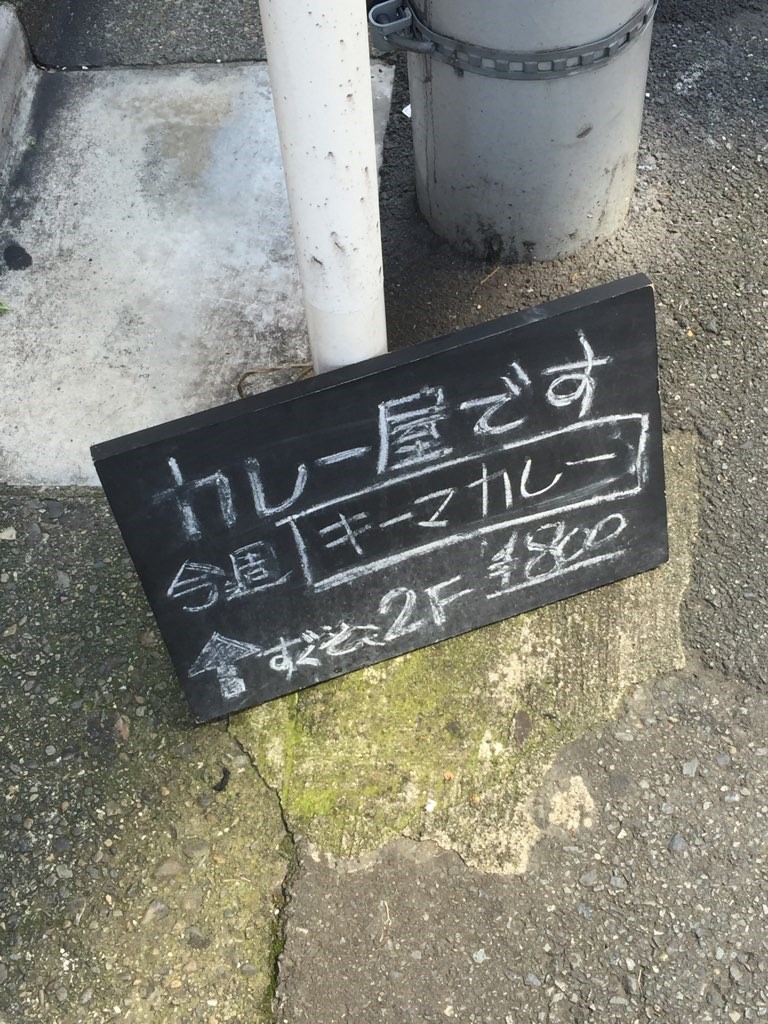 カレー屋です
今週 キーマカレー
¥800
↑すぐそこ2F